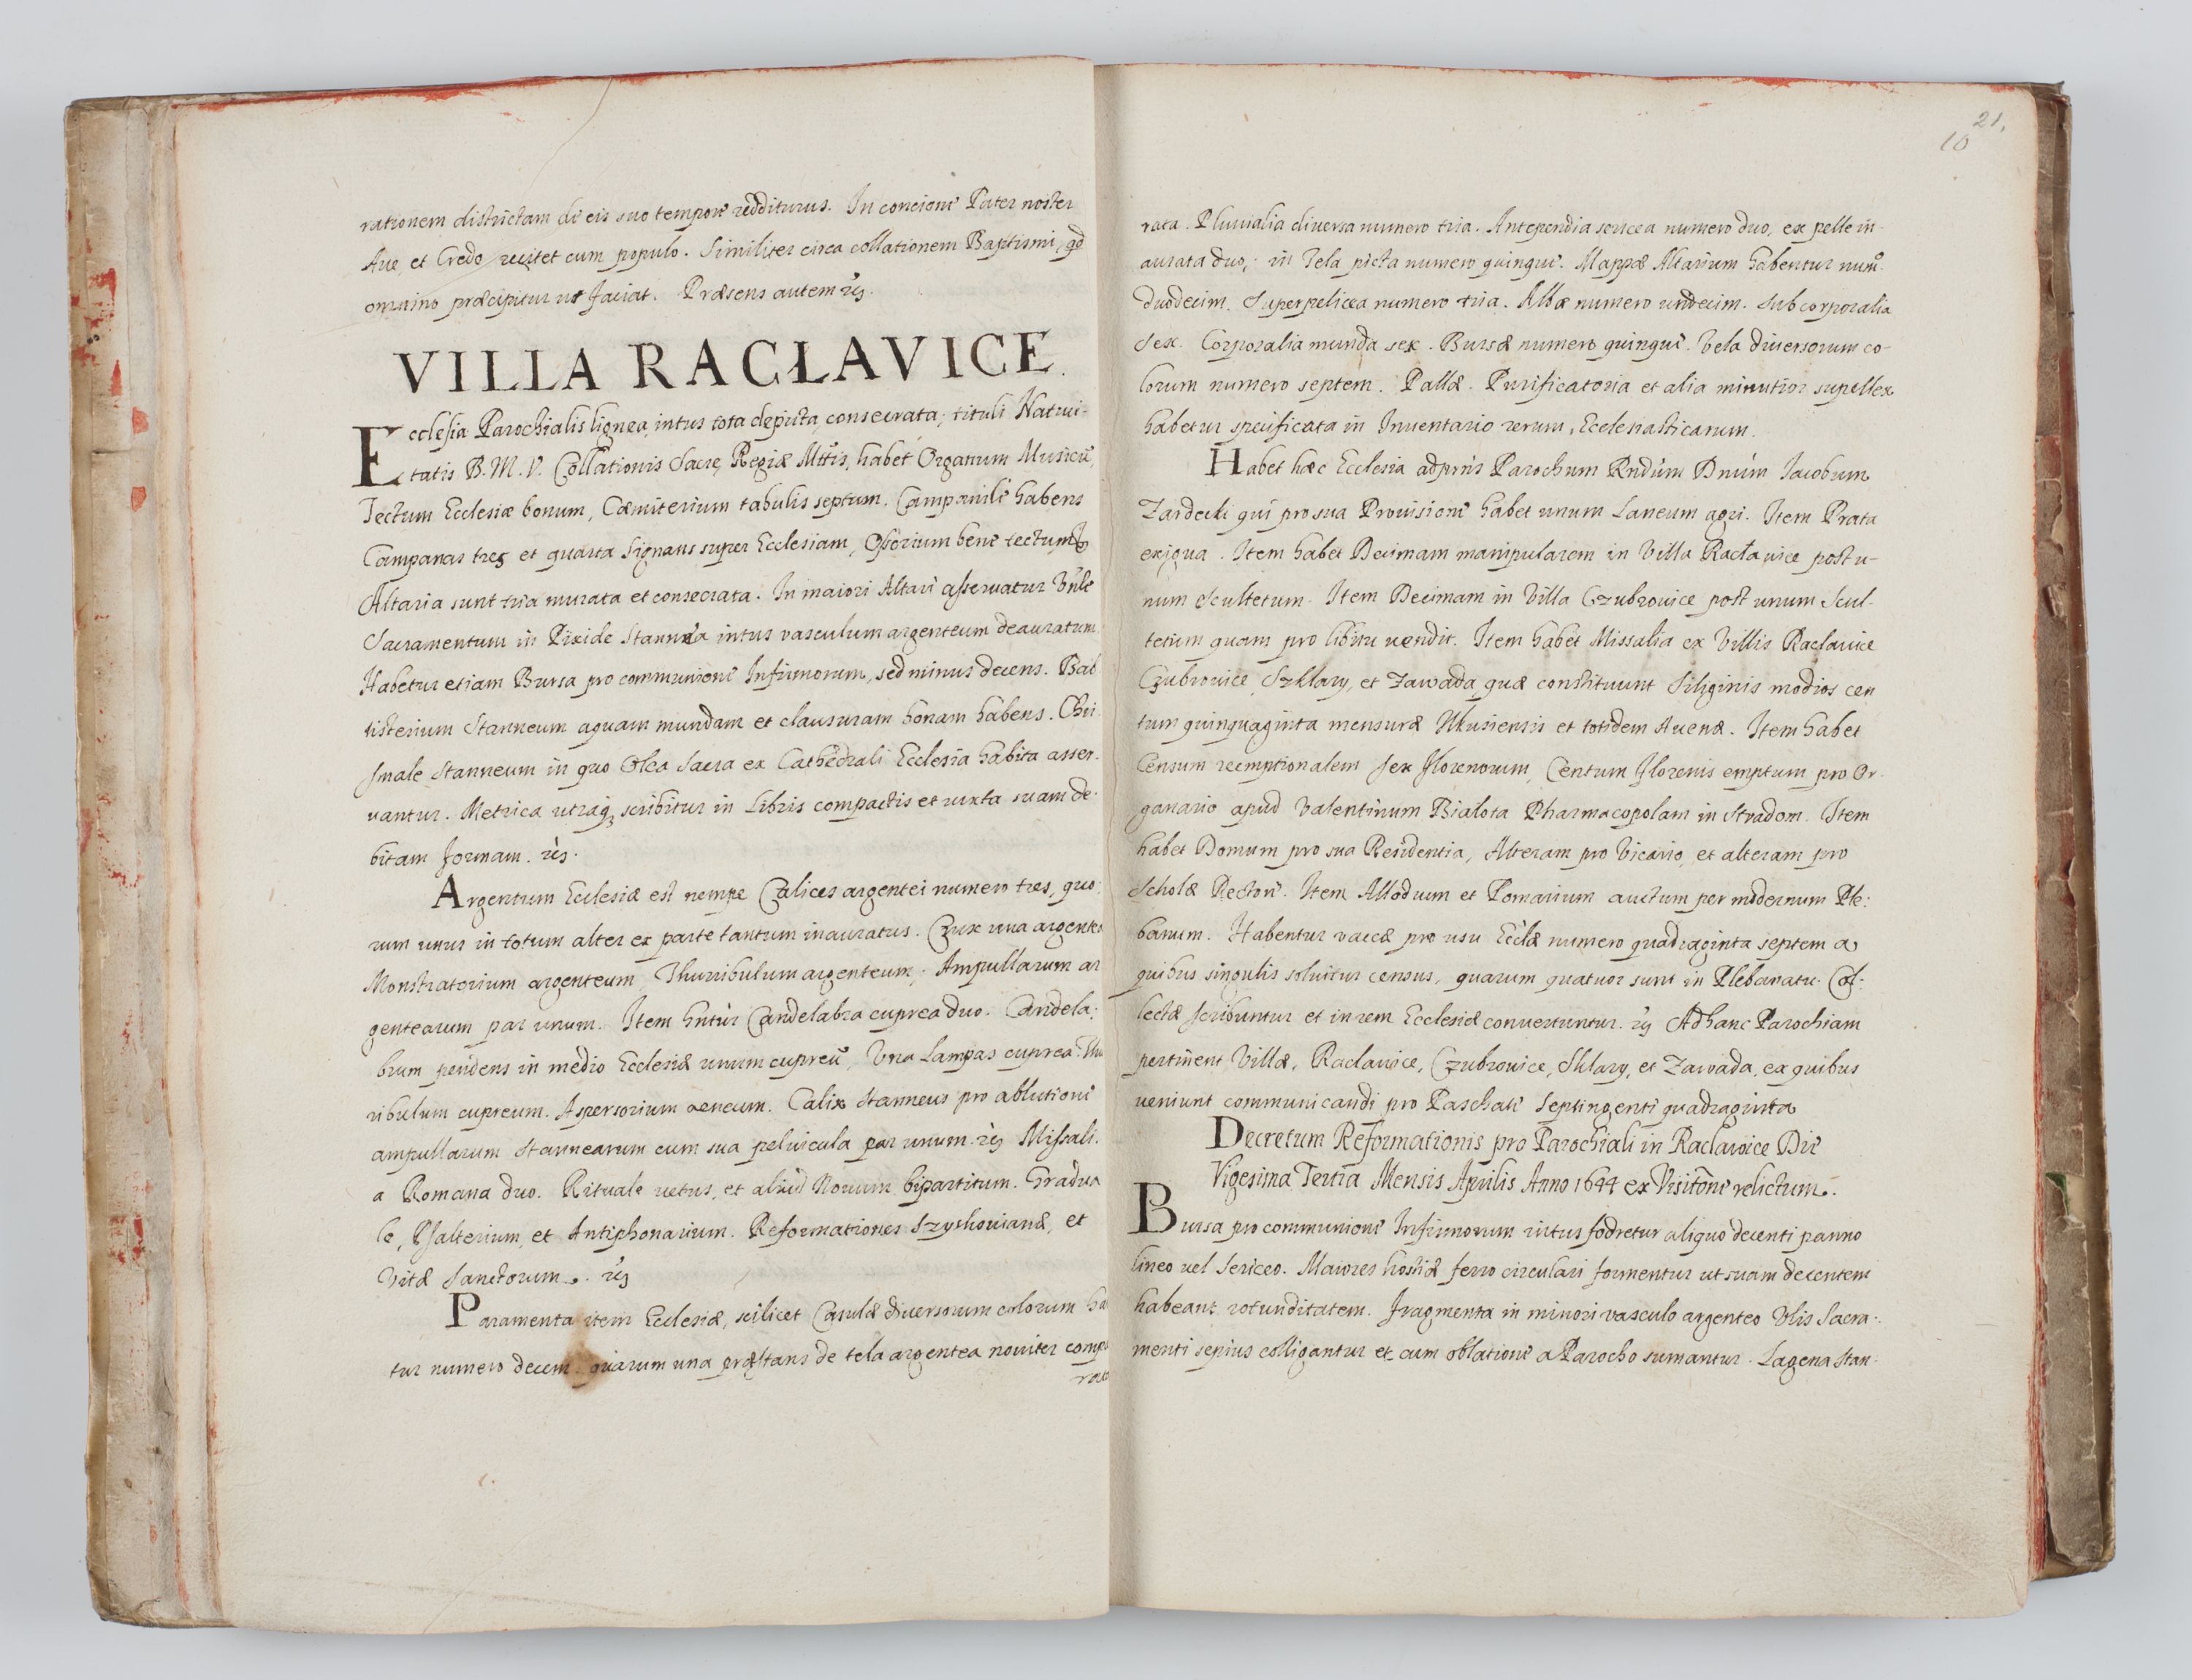 rationem districtam de eis suo tempore redditurus. In concione Pater noster
Aue, et Credo recitet cum populo. Similiter circa collationem Baptismi, qd
omnino præcipitur ut faciat. Præsens autem
VILLA RACŁAVICE.
Ecclesia Parochialis lignea, intus tota depicta, consecrata, tituli Natiui-
tatis B. M. V. Collationis Sacræ Regiæ Mttis, habet Organum Musicū,
Tectum Ecclesiæ bonum, Cæmiterium tabulis septum. Campanile habens
Campanas tres et quarta Signans super Ecclesiam, Ossorium bene tectum
Altaria sunt tria murata et consecrata. In maiori Altari asseruatur Vnle
Sacramentum in Pixide Stannea intus vasculum argenteum deauratum
Habetur etiam Bursa pro communione Infirmorum, sed minus decens. Bab
tisterium Stanneum aquam mundam et clausuram bonam habens. Chri-
smale Stanneum in quo Olea Sacra ex Cathedrali Ecclesia habita asser-
uantur. Metrica utraq; scribitur in Libris compactis et iuxta suam de-
bitam formam.
Argentum Ecclesiæ est nempe Calices argentei numero tres, quo-
rum unus in totum alter ex parte tantum inauratus. Crux una argentea
Monstratorium argenteum, Thurribulum argenteum, Ampullarum ar
gentearum par unum. Item hntur Candelabra cuprea duo. Candela:
brum pendens in medio Ecclesiæ unum cupreū, Vna Lampas cuprea. Thu
ribulum cupreum. Aspersorium aeneum. Calix stanneus pro ablutione
ampullarum stannearum cum sua peluicula par unum. Missali-
a Romana duo. Rituale uetus, et aliud Nouum bipartitum. Gradua
le, Psalterium, et Antiphonarium. Reformationes Szyskouianæ, et
Vitæ Sanctorum.
Paramenta item Ecclesiæ, scilicet Casulæ diuersorum colorum ha
tur numero decem quarum una præstans de tela argentea nouiter comp
rata
21.
10
rata. Pluuialia diuersa numero tria. Antependia sericea numero duo, ex pelle in-
aurata duo, in Tela picta numero quinque. Mappæ Altarium habentur num̄.
duodecim. Superpelicea numero tria. Albæ numero undecim. Subcorporalia
Sex. Corporalia munda sex. Bursæ numero quinque. Vela diuersorum co-
lorum numero septem. Pallæ. Purificatoria et alia minutior supellex
habetur specificata in Inuentario rerum Ecclesiasticarum.
Habet hæc Ecclesia adpriis Parochum Rndum Dnum Iacobum
Zardecki qui pro sua Prouisione habet unum Laneum agri. Item Prata
exigua. Item habet Decimam manipularem in Villa Racłauice post u-
num Scultetum. Item Decimam in Villa Czubrouice post unum Scul-
tetum quam pro libitu uendit. Item habet Missalia ex Villis Raclauice
Czubrouice, Szklary, et Zawada, quæ constituunt Siliginis modios cen
tum quinquaginta mensuræ Ilkusiensis et totidem Auenæ. Item habet
Censum reemptionalem sex florenorum, Centum florenis emptum pro Or-
ganario apud Valentinum Bialota Pharmacopolam in Stradom. Item
habet Domum pro sua Residentia, Alteram pro Vicario, et alteram pro
Scholæ Rectore. Item Allodium et Pomarium auctum per modernum Ple:
banum. Habentur vaccæ pro usu Ecclæ numero quadraginta septem a
quibus singulis soluitur census, quarum quatuor sunt in Plebanatu. Col:
lectæ scribuntur et in rem Ecclesiæ conuertuntur. Ad hanc Parochiam
pertinent Villæ, Raclauice, Czubrouice, Sklary, et Zawada, ex quibus
ueniunt communicandi pro Paschate Septingenti quadraginta
Decretum Reformationis pro Parochiali in Raclawice Die
Vigesima Tertia Mensis Aprilis Anno 1644 ex Visitōne relictum.
Bursa pro communione Infirmorum intus fodretur aliquo decenti panno
lineo uel Sericeo. Maiores hostiæ ferro circulari formentur ut suam decentem
habeant rotunditatem. Fragmenta in minori vasculo argenteo Vlis Sacra-
menti sepius colligantur et cum oblatione a Parocho sumantur. Lagena stan-